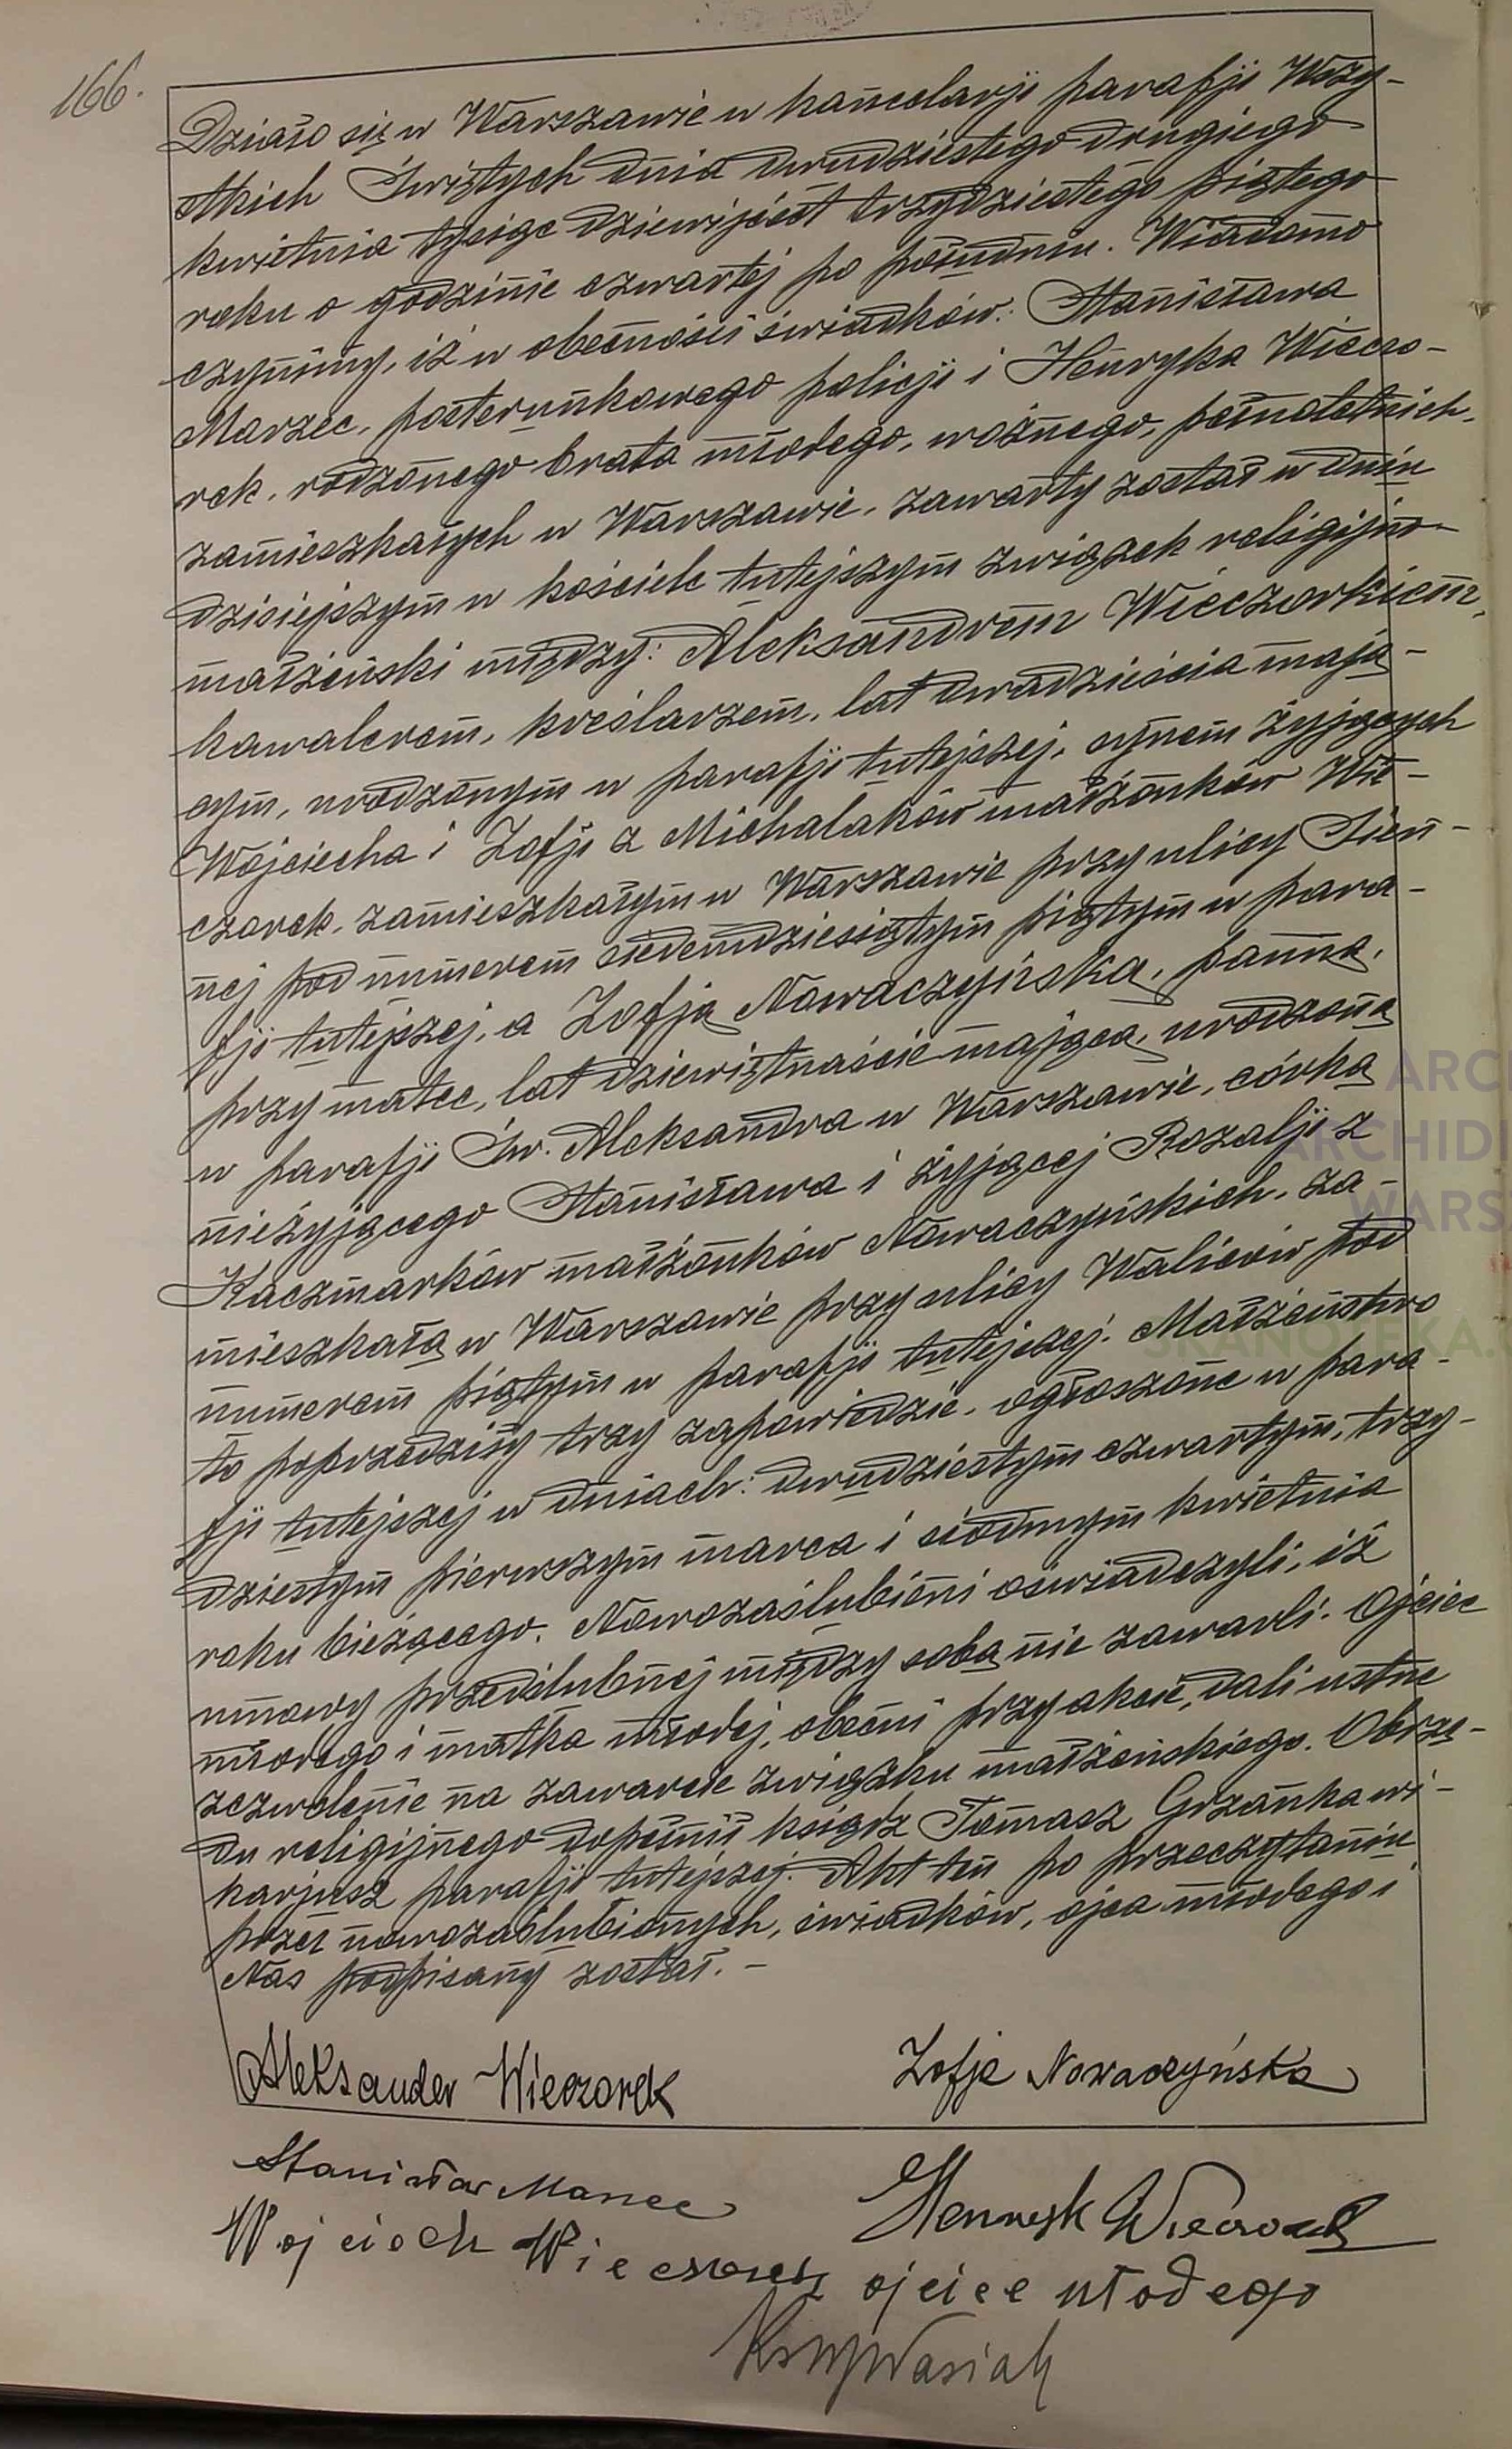 166.
Działo się w Warszawie w kancelarji parafji Wszy-
stkich Świętych dnia dwudziestego drugiego
kwietnia tysiąc dziewięćset trzydziestego piątego
roku o godzinie czwartej po południu. Wiadomo
czynimy, iż w obecności świadków: Stanisława
Marzec, posterunkowego policji i Henryka Wieczo-
rek, rodzonego brata młodego, woźnego, pełnoletnich,
zamieszkałych w Warszawie, zawarty został w dniu
dzisiejszym w kościele tutejszym związek religijno-
małżeński między: Aleksandrem Wieczorkiem,
kawalerem, kreślarzem, lat dwadzieścia mają-
cym, urodzonym w parafji tutejszej, synem żyjących
Wojciecha i Zofji z Michalaków małżonków Wie-
czorek, zamieszkałym w Warszawie przy ulicy Sien-
nej pod numerem siedemdziesiątym piątym w para-
fji tutejszej, a Zofją Nowaczyńską, panną,
przy matce, lat dziewiętnaście mającą, urodzoną
w parafji Św. Aleksandra w Warszawie, córką
nieżyjącego Stanisława i żyjącej Rozalji z
Kaczmarków małżonków Nowaczyńskich, za-
mieszkałą w Warszawie przy ulicy Waliców pod
numerem piątym w parafji tutejszej. Małżeństwo
to poprzedziły trzy zapowiedzie, ogłoszone w para-
fji tutejszej w dniach: dwudziestym czwartym, trzy-
dziestym pierwszym marca i siódmym kwietnia
roku bieżącego. Nowozaślubieni oświadczyli, iż
umowy przedślubnej między sobą nie zawarli. Ojciec
młodego i matka młodej, obecni przy akcie, dali ustne
zezwolenie na zawarcie związku małżeńskiego. Obrzę-
du religijnego dopełnił ksiądz Tomasz Grzanka wi-
karjusz parafji tutejszej. Akt ten po przeczytaniu
przez nowozaślubionych, świadków, ojca młodego i
Nas podpisany został. -
Aleksander Wieczorek Zofja Nowaczyńska
Stanisław Marzec Henryk Wieczorek
Wojciech Wieczorek ojciec młodego
ARC
ARCHIDI
WARS
SKANOTEKA.